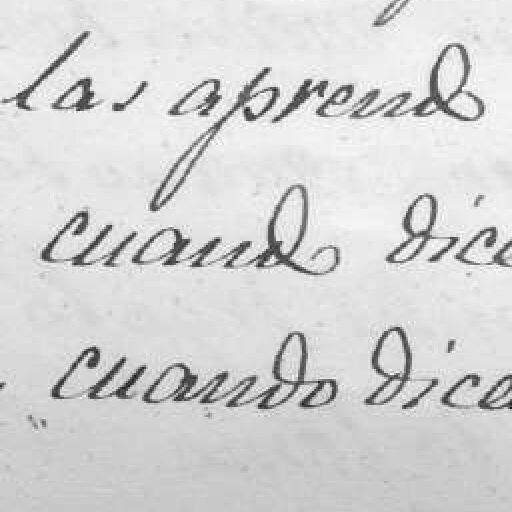 las aprendo
cuando dice
cuando dice